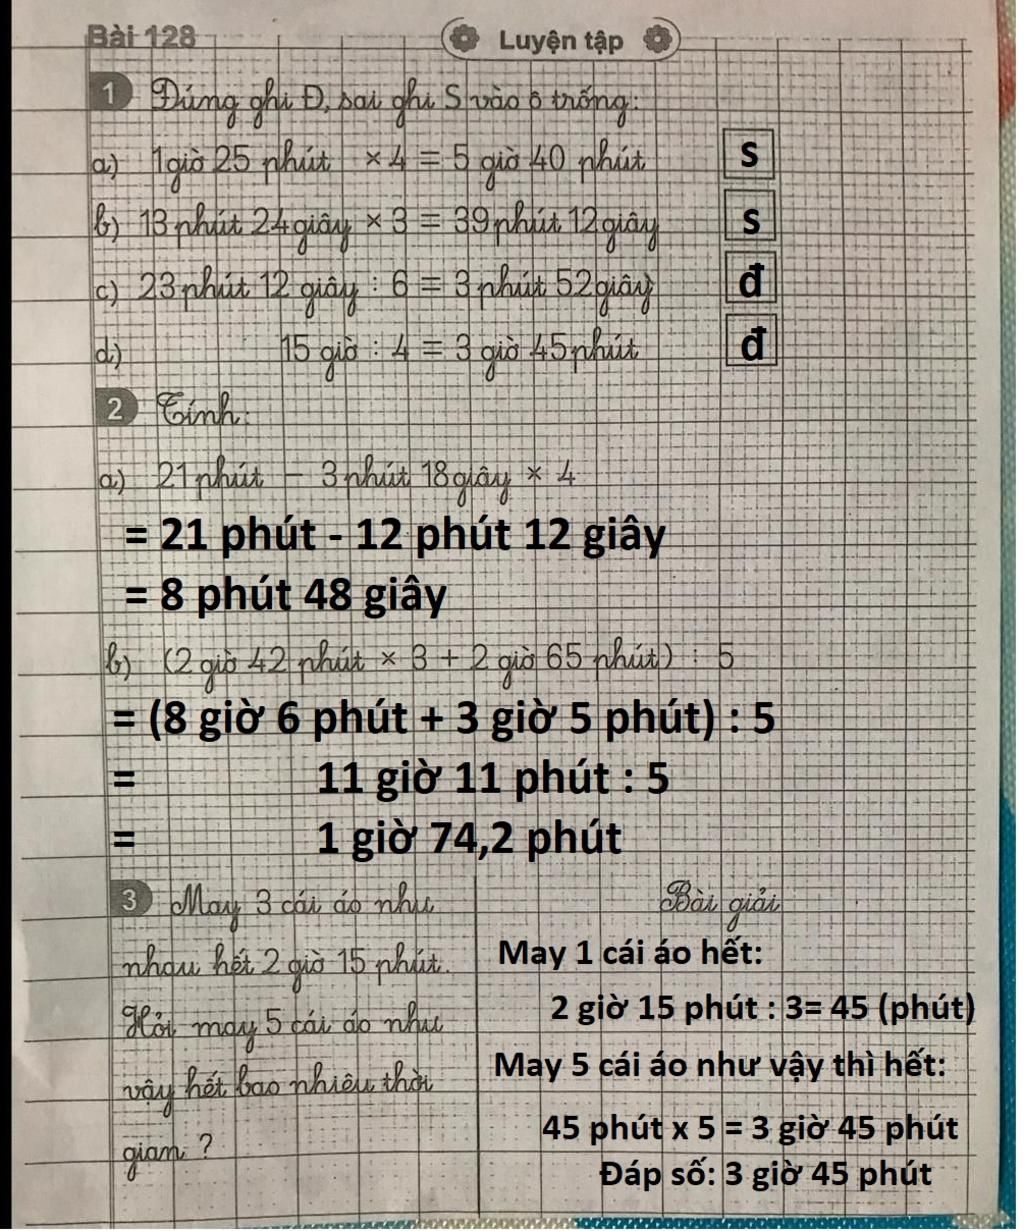 Bài 128
Luyện tập
1 Đúng ghi Đ, sai ghi S vào ô trống:
a) 1giờ 25 phút × 4 = 5 giờ 40 phút s
b) 13 phút 24 giây × 3 = 39 phút 12 giây s
c) 23 phút 12 giây : 6 = 3 phút 52 giây đ
d) 15 giờ : 4 = 3 giờ 45 phút đ
2 Tính:
a) 21 phút - 3 phút 18 giây × 4
= 21 phút - 12 phút 12 giây
= 8 phút 48 giây
b) (2 giờ 42 phút × 3 + 2 giờ 65 phút) : 5
= (8 giờ 6 phút + 3 giờ 5 phút) : 5
= 11 giờ 11 phút : 5
= 1 giờ 74,2 phút
3 May 3 cái áo như
nhau hết 2 giờ 15 phút.
Hỏi may 5 cái áo như
vậy hết bao nhiêu thời
gian ?
Bài giải
May 1 cái áo hết:
2 giờ 15 phút : 3= 45 (phút)
May 5 cái áo như vậy thì hết:
45 phút x 5 = 3 giờ 45 phút
Đáp số: 3 giờ 45 phút